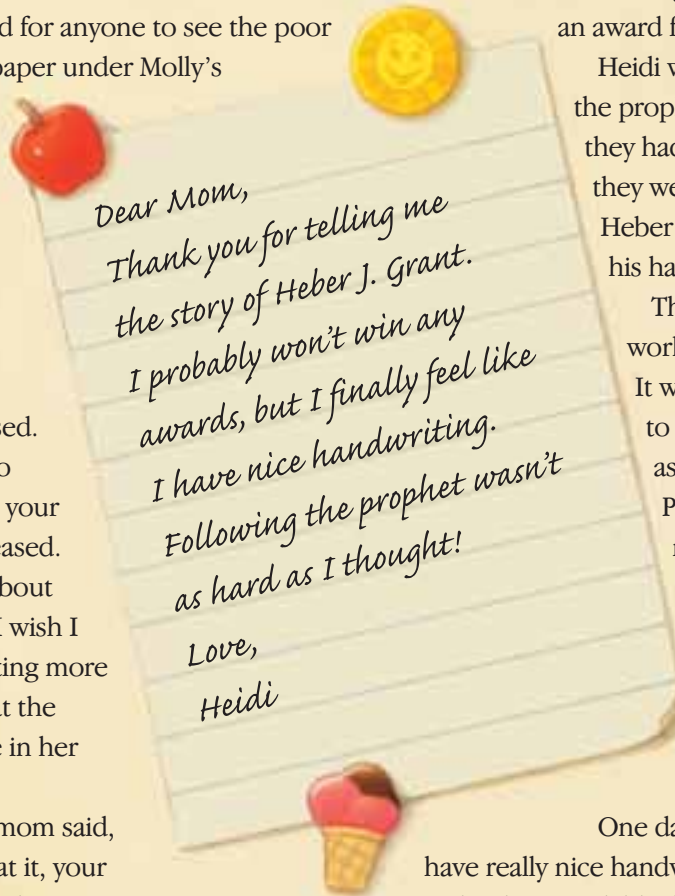 d for anyone to see the poor
paper under Molly's
sed.
o
your
eased.
bout
I wish I
ting more
at the
e in her
mom said,
at it, your
Dear Mom,
Thank you for telling me
the story of Heber J. Grant.
I probably won't win any
awards, but I finally feel like
I have nice handwriting.
Following the prophet wasn't
as hard as I thought!
Love,
Heidi
an award f
Heidi w
the prop
they had
they we
Heber
his ha
Th
worl
It w
to
as
P
One da
have really nice handw